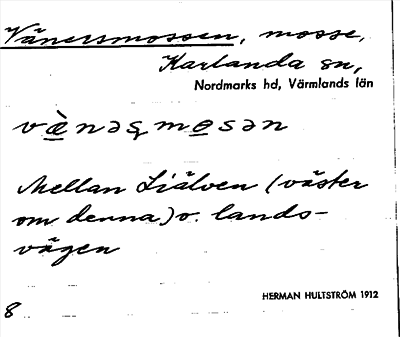 Vänersmossen, mosse,
Karlanda sn,
Nordmarks hd, Värmlands län
væ̀nəʂmosən
Mellan Liälven (väster
om denna) o. lands-
vägen
HERMAN HULTSTRÖM 1912
8